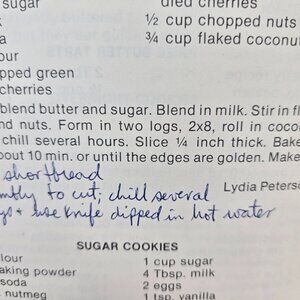 dried cherries
k
½ cup chopped nuts
a
¾ cup flaked coconu
our
pped green
cherries
blend butter and sugar. Blend in milk. Stir in fl
and nuts. Form in two logs, 2x8, roll in coco
chill several hours. Slice ¼ inch thick. Bake
about 10 min. or until the edges are golden. Make
shortbread
Lydia Peters
mbly to cut; chill several
ys + use knife dipped in hot water
SUGAR COOKIES
lour
1 cup sugar
aking powder
4 Tbsp. milk
soda
2 eggs
nutmeg
1 tsp. vanilla